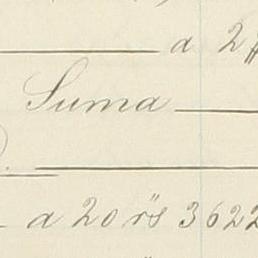 a 2
Suma
a 20 rs 3622